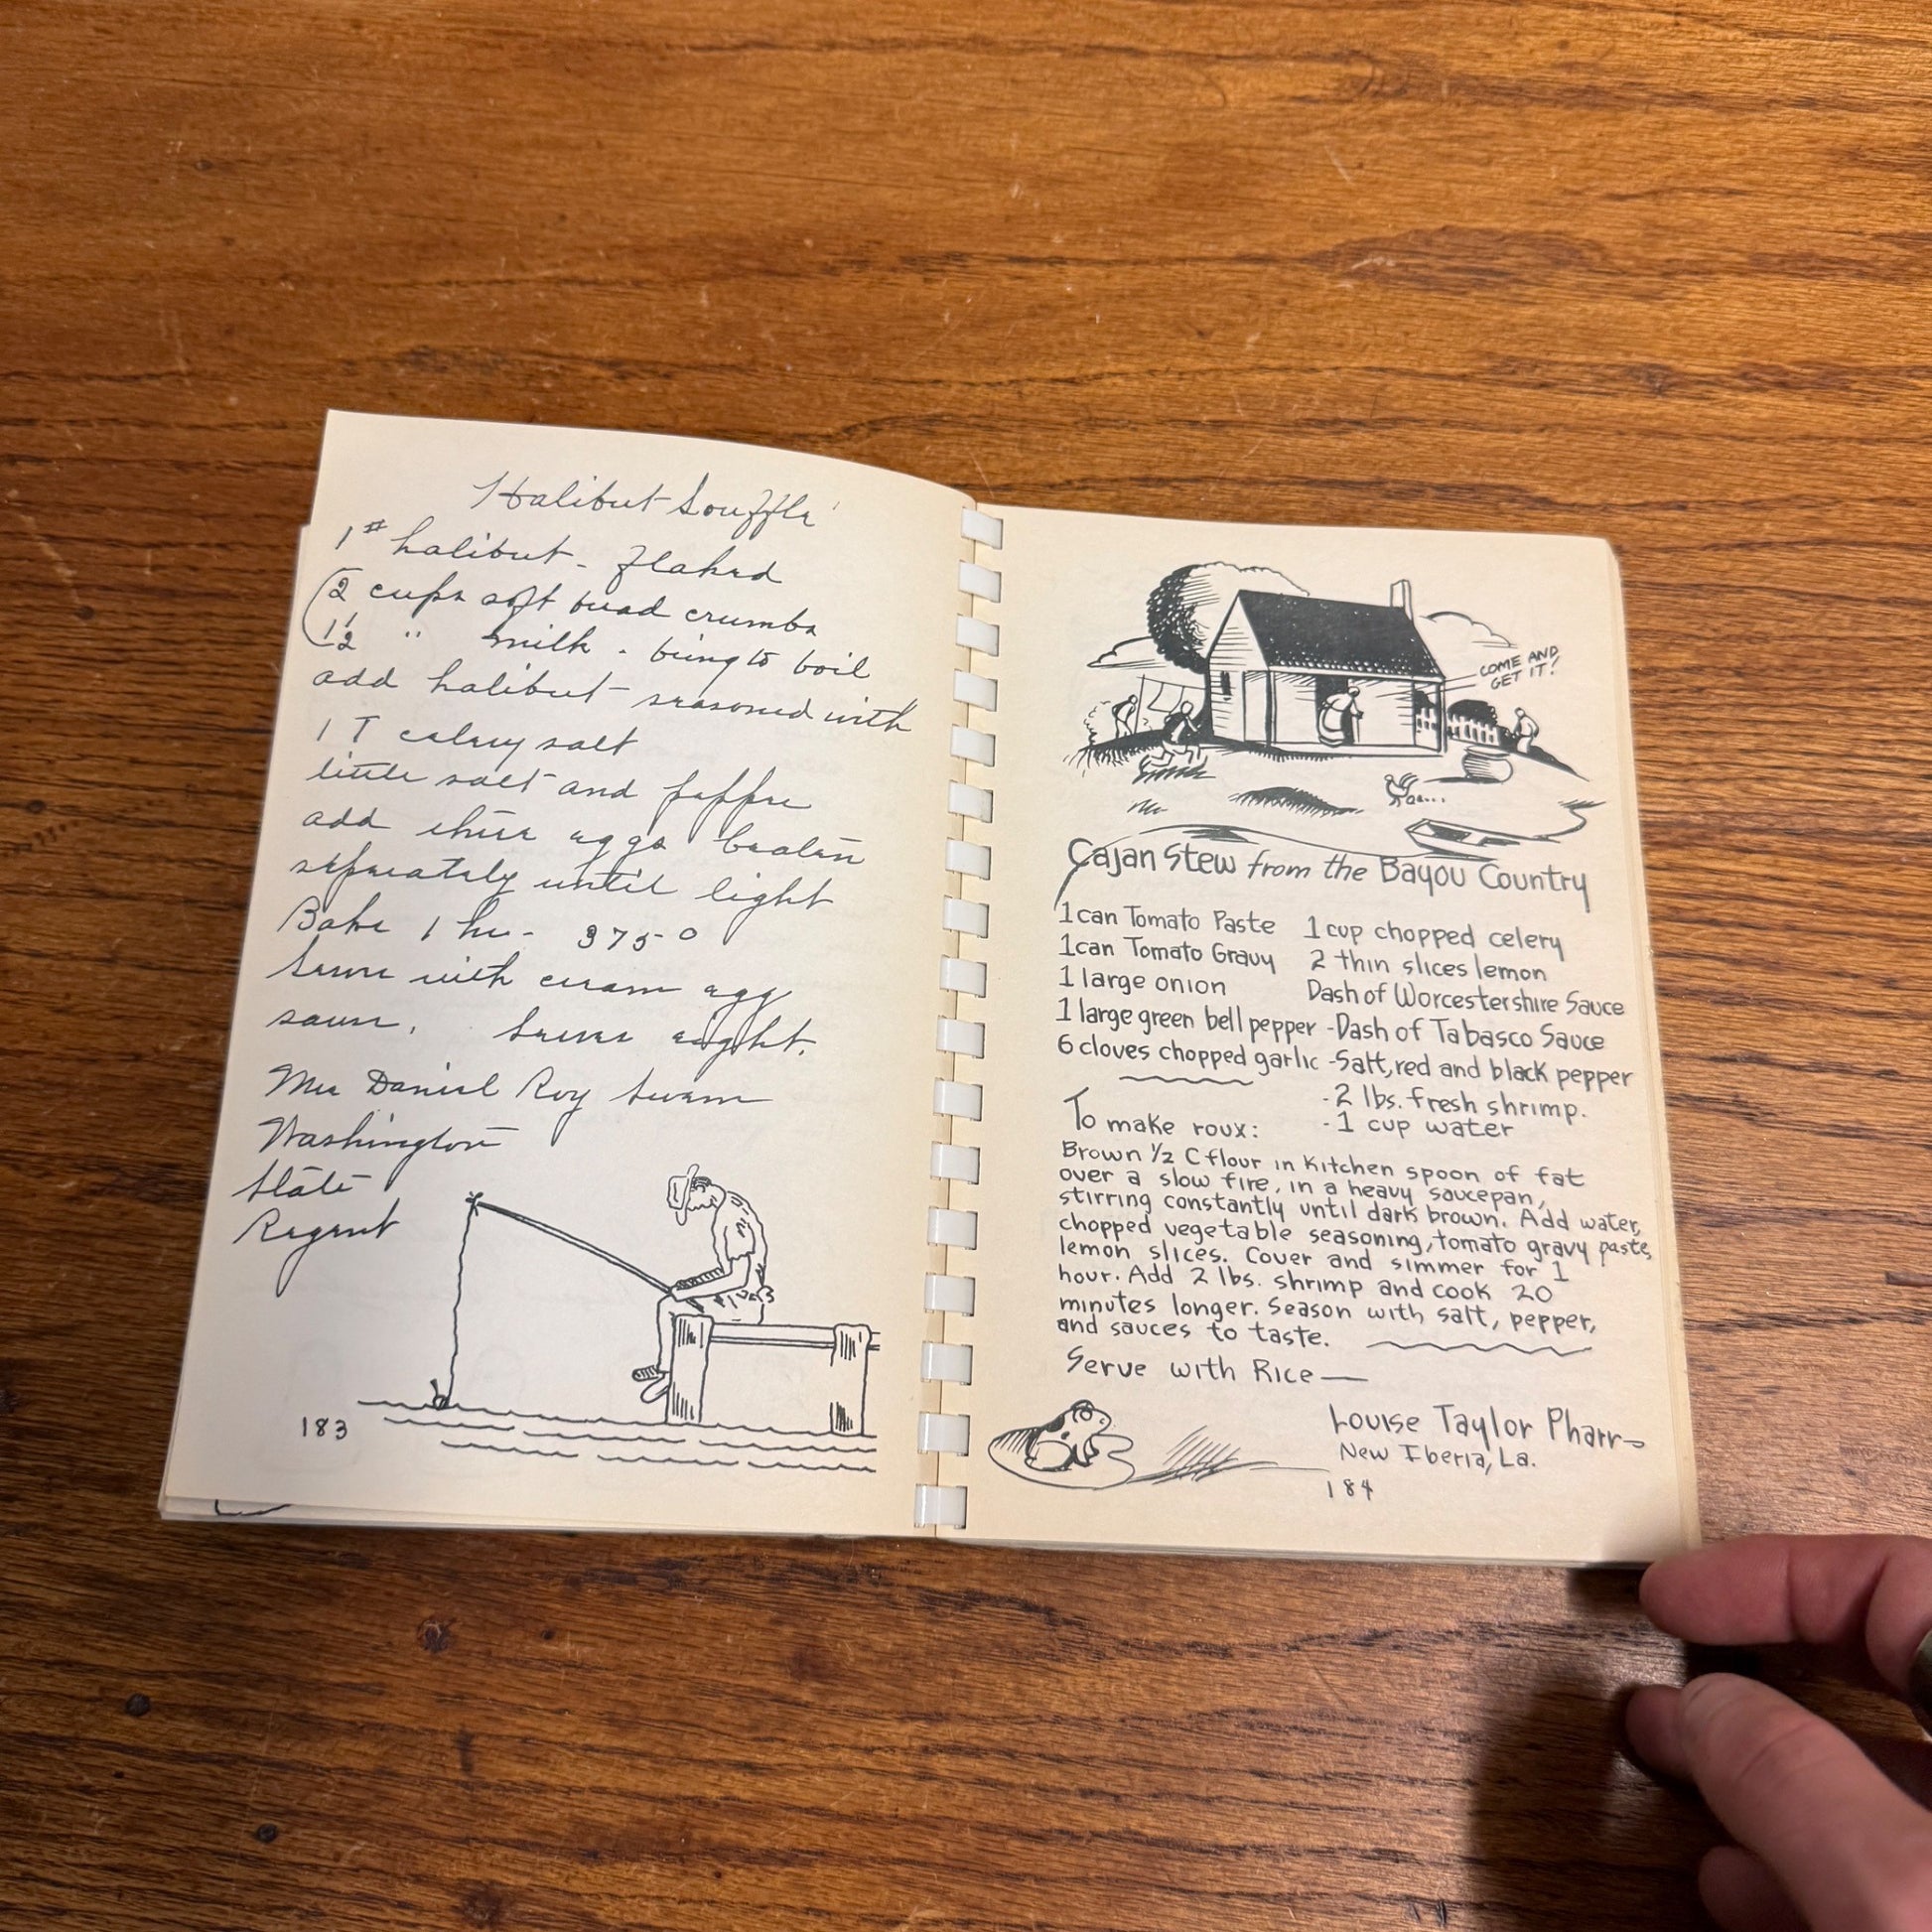 Halibut Souffle'
1# halibut - flaked
2 cups soft bread crumbs
1½ " milk - bring to boil
add halibut - seasoned with
1 T celery salt
little salt and pepper
add three eggs beaten
seperately until light
Bake 1 hr - 375°
Serve with cream egg
sauce. Serves eight.
Mrs Daniel Roy Swem
Washington
State
Regent
183
COME AND
GET IT!
Cajan Stew from the Bayou Country
1 can Tomato Paste 1 cup chopped celery
1 can Tomato Gravy 2 thin slices lemon
1 large onion Dash of Worcestershire Sauce
1 large green bell pepper - Dash of Tabasco Sauce
6 cloves chopped garlic - Salt, red and black pepper
- 2 lbs. fresh shrimp.
To make roux: - 1 cup water
Brown ½ C flour in kitchen spoon of fat
over a slow fire, in a heavy saucepan,
stirring constantly until dark brown. Add water,
chopped vegetable seasoning, tomato gravy paste,
lemon slices. Cover and simmer for 1
hour. Add 2 lbs. shrimp and cook 20
minutes longer. Season with salt, pepper,
and sauces to taste.
Serve with Rice —
Louise Taylor Pharr
New Iberia, La.
184